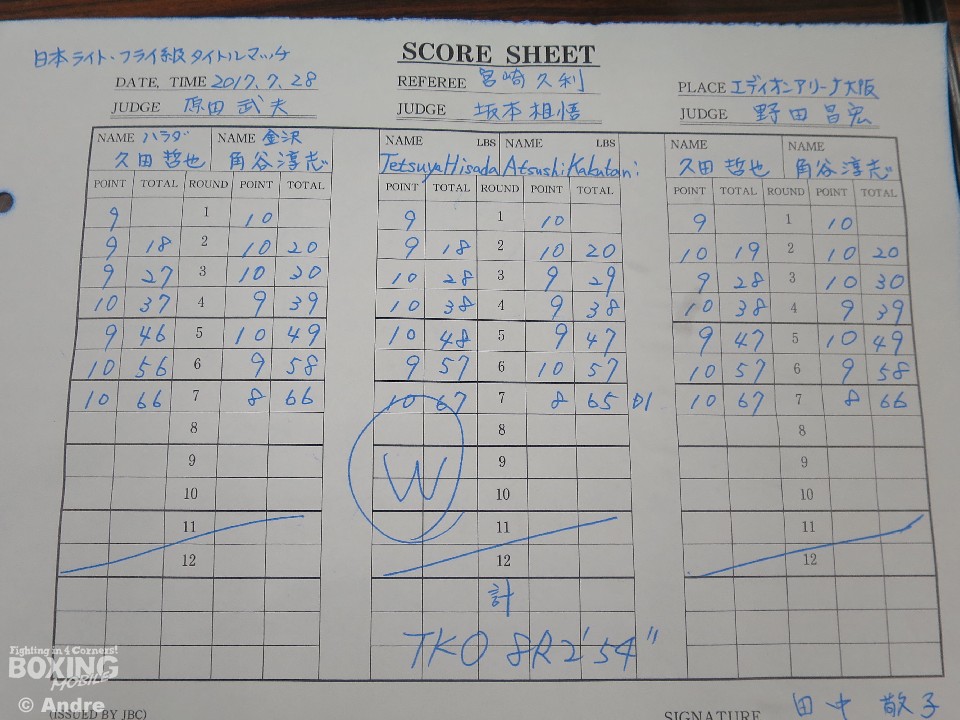 日本ライト・フライ級タイトルマッチ
SCORE SHEET
DATE, TIME 2017.7.28 REFEREE 宮崎久利 PLACE エディオンアリーナ大阪
JUDGE 原田武夫 JUDGE 坂本相悟 JUDGE 野田昌宏
NAME ハラダ NAME 金沢 NAME LBS NAME LBS NAME NAME
久田哲也 角谷淳志 Tetsuya Hisada Atsushi Kakutani 久田哲也 角谷淳志
POINT TOTAL ROUND POINT TOTAL POINT TOTAL ROUND POINT TOTAL POINT TOTAL ROUND POINT TOTAL
9 1 10 9 1 10 9 1 10
9 18 2 10 20 9 18 2 10 20 10 19 2 10 20
9 27 3 10 30 10 28 3 9 29 9 28 3 10 30
10 37 4 9 39 10 38 4 9 38 10 38 4 9 39
9 46 5 10 49 10 48 5 9 47 9 47 5 10 49
10 56 6 9 58 9 57 6 10 57 10 57 6 9 58
10 66 7 8 66 10 67 7 8 65 D1 10 67 7 8 66
8 8 8
W
9 9 9
10 10 10
11 11 11
12 12 12
計
TKO 8R 2'54"
Fighting in 4 Corners!
BOXING
MOBILE
© Andre
(ISSUED BY JBC) SIGNATURE 田中敬子